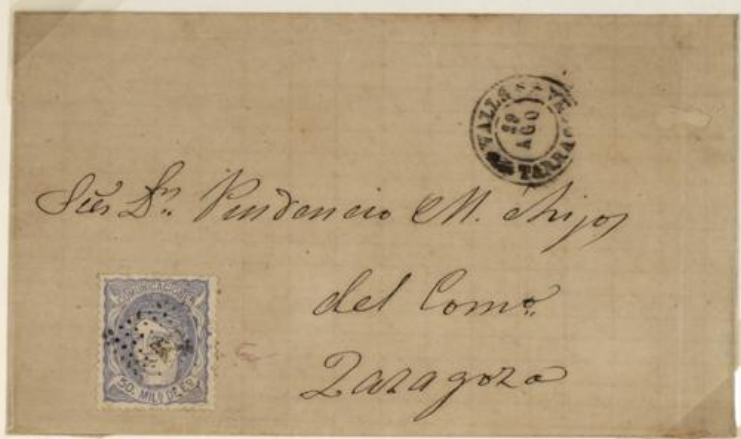 VALLS
29
AGO
TARRAG
Sres Dn. Prudencio M. é hijos
del Como.
Zaragoza
COMUNICACIONES
50. MILS DE EO.